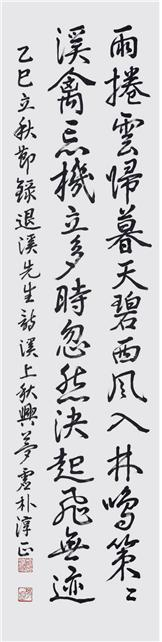 雨捲雲歸暮天碧西風入林鳴策〻
溪禽忘機立多時忽然決起飛無迹
乙巳立秋節錄退溪先生詩溪上秋興夢虛朴澤正